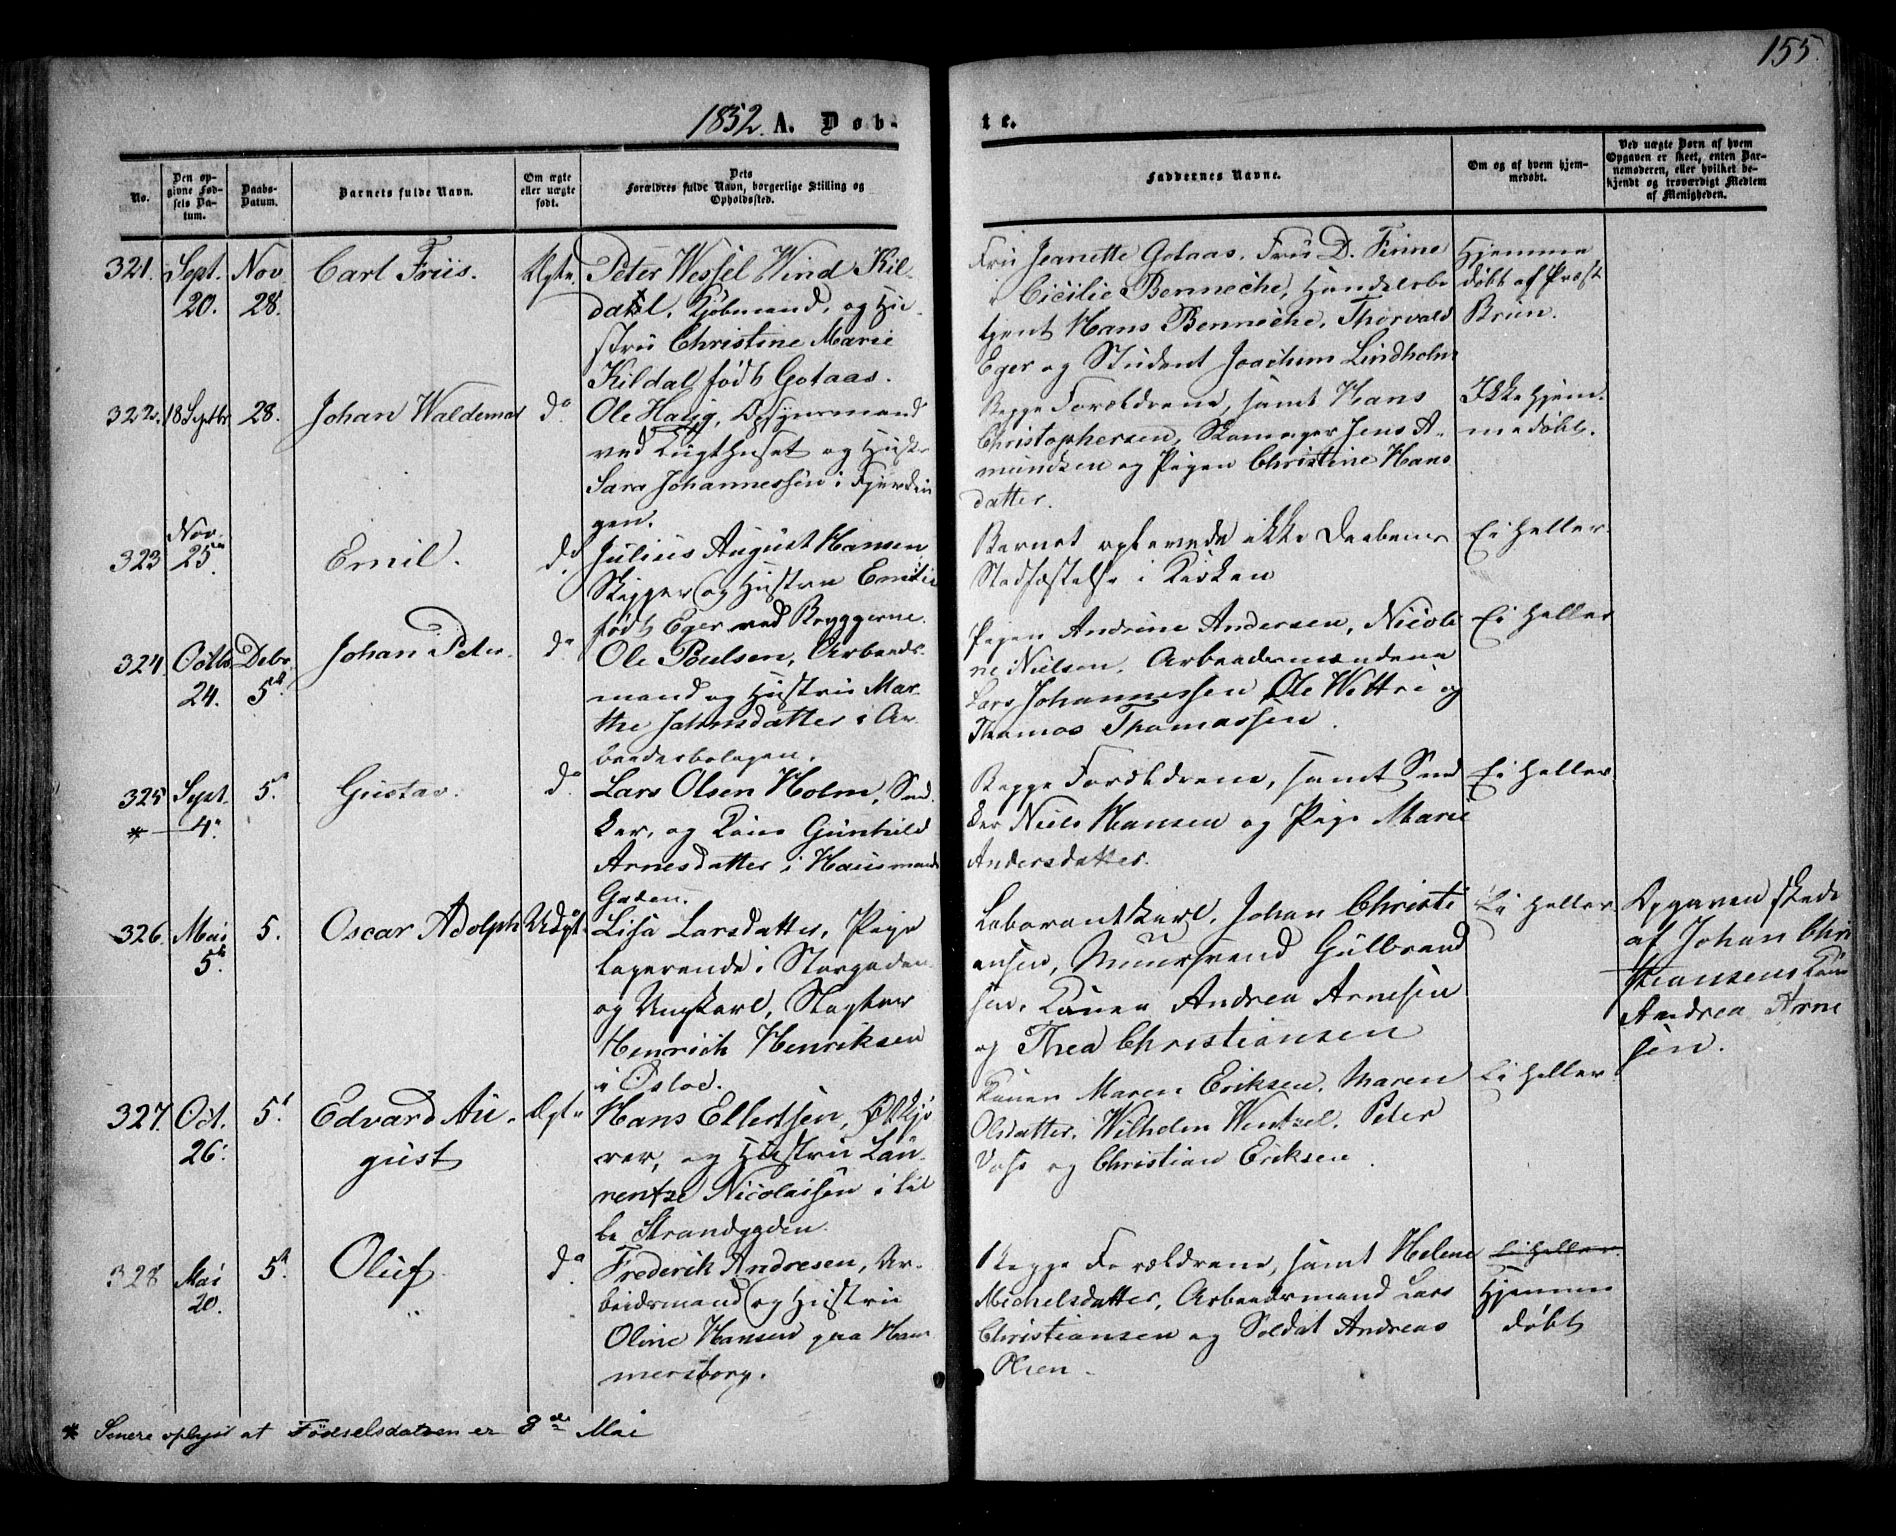 155.
1852. A. Døb-
te.
No.
Den op-
givne Fød-
sels Da-
tum.
Daabs-
Datum.
Barnets fulde Navn.
Om ægte
eller uægte
født.
Dets
Forældres fulde Navn, borgerlige Stilling og
Opholdssted.
Faddernes Navne.
Om og af hvem hjem-
medøbt.
Ved uægte Børn af hvem
Opgaven er skeet, enten Bar-
nemoderen, eller hvilket be-
kjendt og troværdigt Medlem
af Menigheden.
321. Sept. 20. Nov. 28. Carl Friis. Ægte.
Peter Wessel Wind Kil-
dahl, Kjøbmand, og Hu-
stru Christine Marie
Kildal født Gotaas.
Fru Jeanette Gotaas, Fru D. Finne
Cicilie Benneche, Handelsbe
tjent Hans Benneche, Thorvald
Eger og Student Joachim Lindholm
Hjemme
døbt af Præst
Brun.
322. 18 Septbr. 28. Johan Waldemar do
Ole Haug, Opsynsmand
ved Tugthuset og Hustr
Sara Johannessen i Fjerdin
gen.
Begge Forældrene, samt Hans
Christophersen, Skomager Jens A-
mundsen og Pigen Christine Hans
datter.
Ikke hjem-
medøbt.
323 Nov. 25. Emil. do
Julius August Hansen
Skipper og Hustru Emilie
født Eger ved Bryggerne.
Barnet oplevede ikke Daabens
Stadfæstelse i Kirken
Ei heller.
324. Octb. 24. Debr. 5. Johan Peter. do
Ole Poulsen, Arbeids-
mand og Hustru Mar-
the Jahnsdatter i Ar-
beiderboligen.
Pigen Andrine Andersen, Nicoli
ne Nielsen, Arbeidsmændene
Lars Johannessen, Ole Wettre og
Thomas Thomassen.
Ei heller
325 * Sept. 4. 5. Gustav. do
Lars Olsen Holm, Snd
ker, og Kone Gunhild
Arnesdatter i Hausmands
Gaden.
Begge Forældrene, samt Snd
ker Niels Hansen og Pige Marie
Andersdatter.
Ei heller.
326. Mai 5. 5. Oscar Adolph Uægt.
Lisa Larsdatter, Pige
logerende i Storgaden
og Ungkarl, Slagter
Henrich Henriksen
i Osloe.
Laborantkarl, Johan Christi
ansen, Muursvend Gulbrand
sen, Konen Andrea Arnesen
og Thea Christiansen
Ei heller.
Opgaven skede
af Johan Chri
stiansens Kone
Andrea Arne
sen.
327. Oct. 26. 5. Edvard Au-
gust Ægte
Hans Ellertsen,
rer, og Hustru Lau-
rentze Nicolaisen i lil
le Strandgaden.
Konen Maren Eriksen, Maren
Olsdatter, Wilhelm Wentzel, Peter
Voss og Christian Eriksen.
Ei heller.
328 Mai 20. 5. Oluf do
Frederik Andresen, Ar-
beidsmand og Hustru
Oline Hansen paa Ham
mersborg.
Begge Forældrene, samt Helene
Michelsdatter, Arbeidsmand Lars
Christiansen og Soldat Andreas
Olsen.
Ei heller.
Hjemme
døbt
* Senere oplyst at Fødselsdatoen er 8de Mai